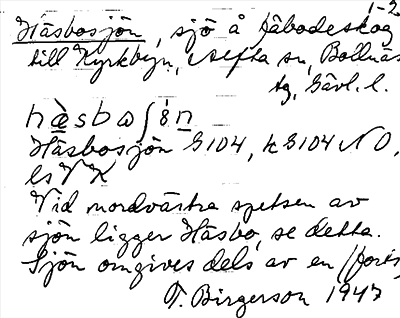 1-2
Häsbosjön, sjö å fäbodeskog
till Kyrkbyn, Alfta sn, Bollnäs
tg, Gävl. l.
Häsbosjön G104, k G104 NO,
ls V K
Vid nordvästra spetsen av
sjön ligger Häsbo, se detta.
Sjön omgives dels av en
T. Birgerson 1947